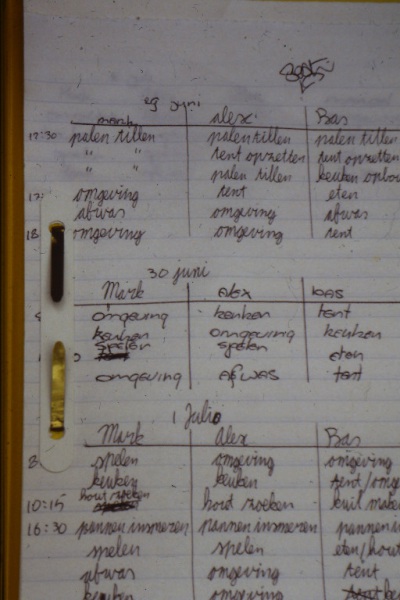 29 juni
Mark alex Bas
12:30 palen tillen palen tillen palen tillen
" " tent opzetten tent opzetten
" " palen tillen keuken opbou
17: omgeving tent eten
afwas omgeving afwas
18 omgeving omgeving tent
30 juni
Mark Alex Bas
omgeving keuken tent
keuken omgeving keuken
spelen spelen
eten
omgeving AfwAS tent
1 Julio
Mark Alex Bas
8: spelen omgeving omgeving
keuken keuken tent/omge
hout zoeken
10:15 hout zoeken kuil maken
16:30 pannen insmeren pannen insmeren pannen i
spelen spelen eten/hout
afwas omgeving tent
keuken omgeving